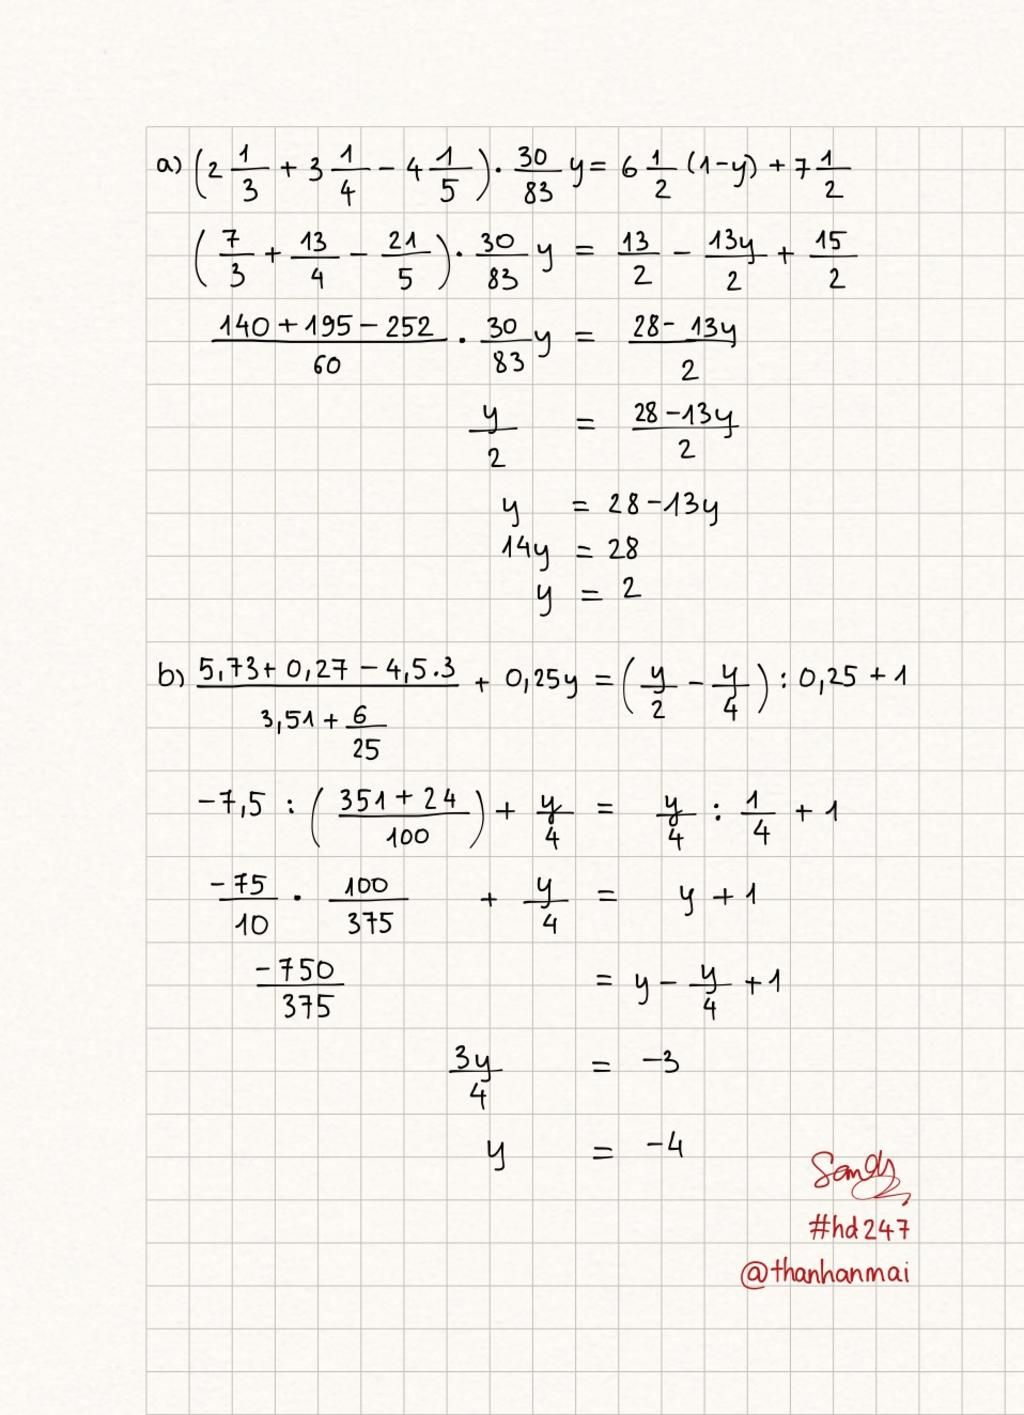 a) (2 1/3 + 3 1/4 - 4 1/5) . 30/83 y = 6 1/2 (1-y) + 7 1/2
(7/3 + 13/4 - 21/5) . 30/83 y = 13/2 - 13y/2 + 15/2
(140 + 195 - 252)/60 . 30/83 y = (28 - 13y)/2
y/2 = (28 - 13y)/2
y = 28 - 13y
14y = 28
y = 2
b) (5,73 + 0,27 - 4,5.3)/(3,51 + 6/25) + 0,25y = (y/2 - y/4) : 0,25 + 1
-7,5 : ((351 + 24)/100) + y/4 = y/4 : 1/4 + 1
-75/10 . 100/375 + y/4 = y + 1
-750/375 = y - y/4 + 1
3y/4 = -3
y = -4
Sandy
#hd247
@thanhanmai